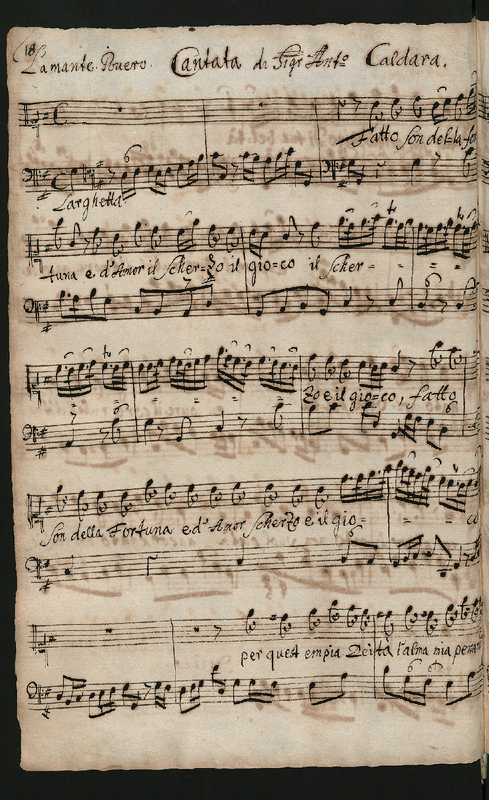 18
Lamante Povero. Cantata di Sigr Anto Caldara.
Fatto son del-la for
Larghetto
tuna e d'Amor il scher=zo il gio=co il scher-
zo e il gio=co, fatto
son della Fortuna e d'Amor scherzo e il gio=
co
per quest empia Deità l'alma mia penan